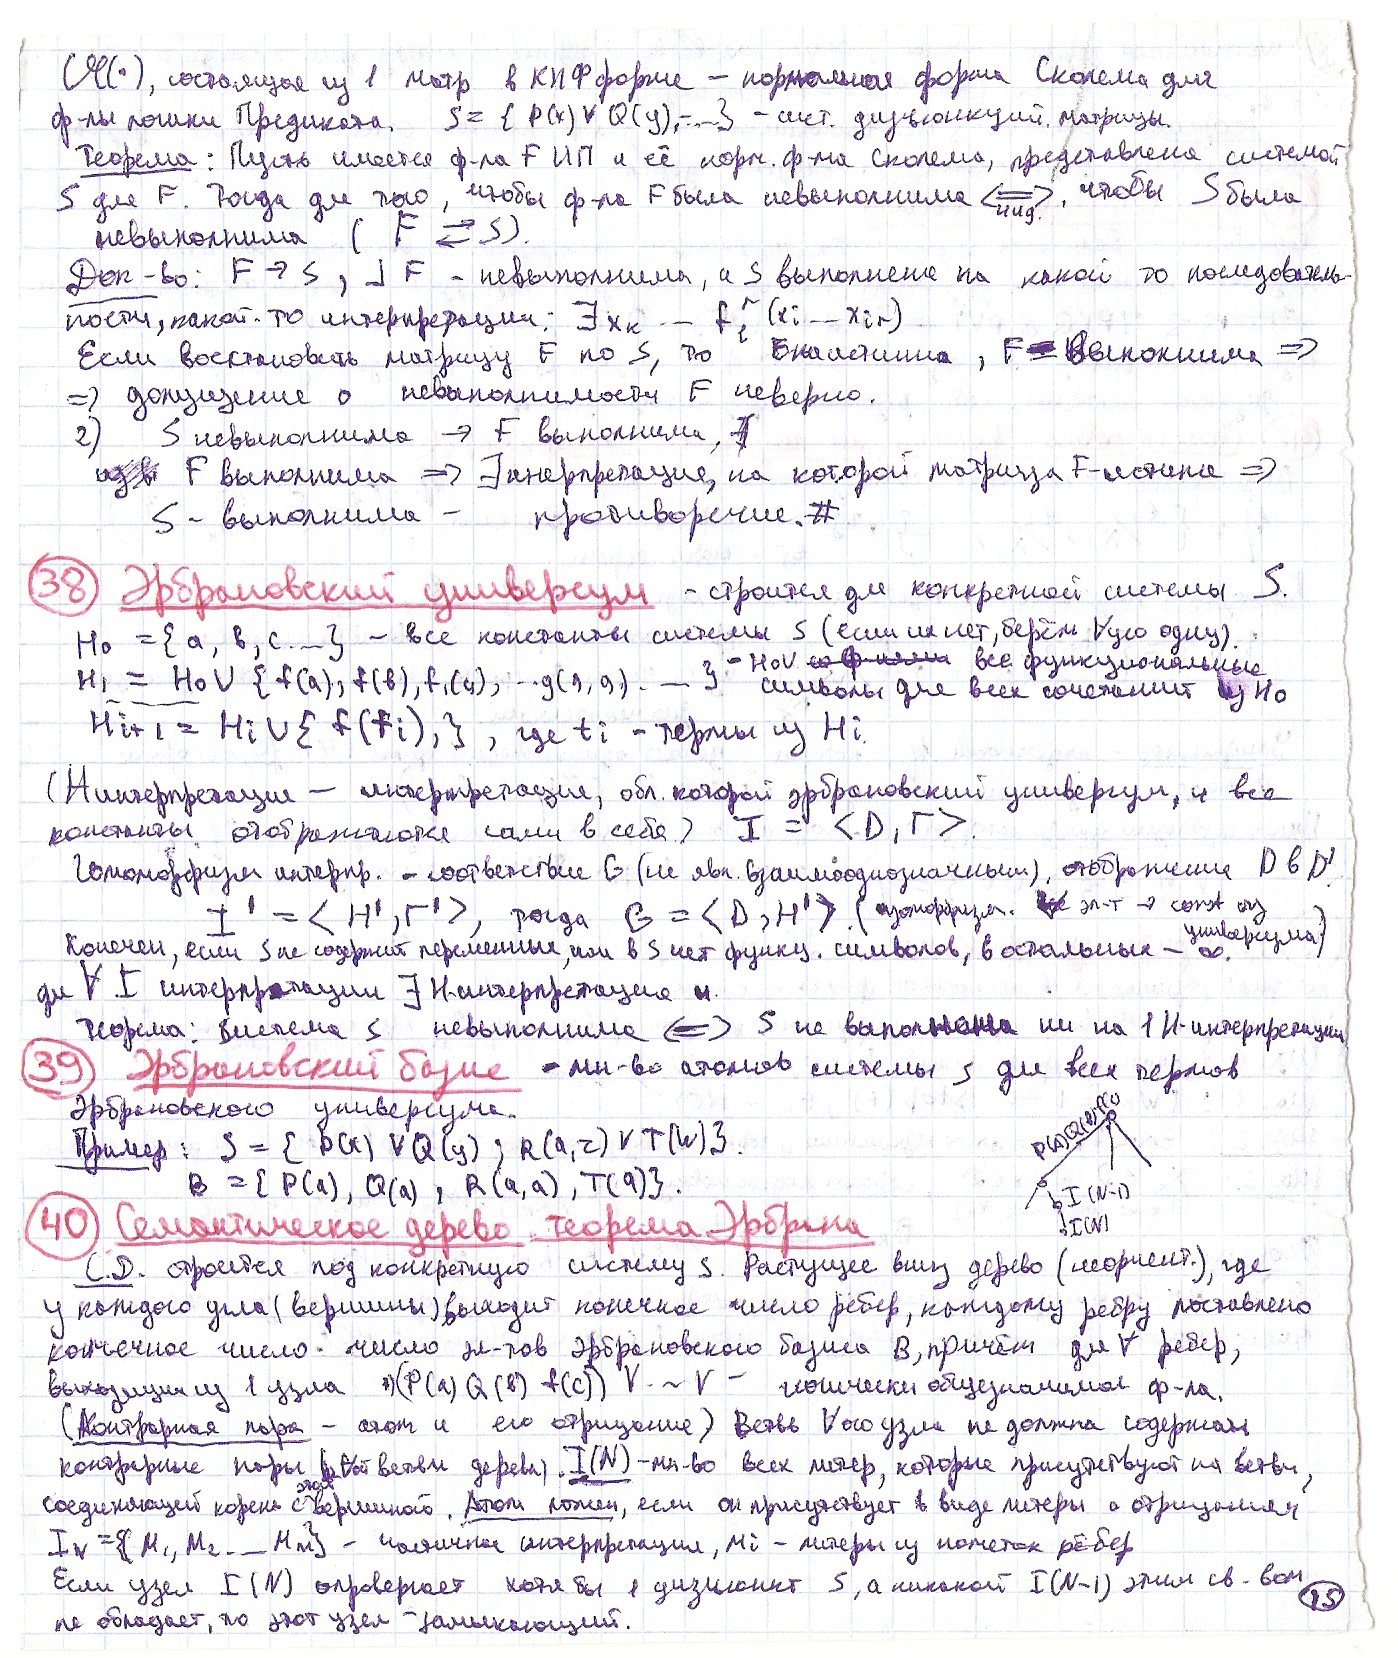 𝒰(·), состоящая из 1 матр в КНФ форме – нормальная форма Сколема для
ф-лы логики Предиката. S = { P(x) ∨ Q(y), ... } - сист. дизъюнкций матрицы.
Теорема: Пусть имеется ф-ла F ИП и её норм. ф-ма Сколема, представлена системой
S для F. Тогда для того, чтобы ф-ла F была невыполнима <=> нид., чтобы S была
невыполнима ( F ⇄ S).
Док-во: F → S, ] F - невыполнима, а S выполнена на какой то последователь-
ности, какой-то интерпретации: ∃xк ... f (xi ... xir)
Если восстановить матрицу F по S, то она истинна, F выполнима =>
=> допущение о невыполнимости F неверно.
2) S невыполнима → F выполнима,
F выполнима => ∃ интерпретация, на которой матрица F-истина =>
S - выполнима - противоречие. #
38 Эрбрановский универсум - строится для конкретной системы S.
H0 = {a, b, c ...} - все константы системы S (если их нет, берём ∀ую одну).
H1 = H0 ∪ {f(a), f(b), f1(y), ... g(a,a) ... } - H0 ∪ все функциональные
символы для всех сочетаний из H0
Hi+1 = Hi ∪ { f(ti), }, где ti - термы из Hi.
(H интерпретация — интерпретация, обл. которой эрбрановский универсум, и все
константы отображаются сами в себя) I = <D, Γ>.
Гомоморфизм интерпр. - соответствие G (не явл. взаимооднозначным), отображение D в D'
I' = <H', Γ'>, тогда G = <D, H'>. (изоморфизм. эл-т → const из
универсума)
Конечен, если S не содержит переменных, или в S нет функц. символов, в остальных - ∞.
для ∀ I интерпретации ∃ H-интерпретация
Теорема: Система S невыполнима <=> S не выполнима ни на 1 H-интерпретации
39 Эрбрановский базис - мн-во атомов системы S для всех термов
Эрбрановского универсума.
Пример: S = { P(x) ∨ Q(y) ; R(a,z) ∨ T(w) }.
B = { P(a), Q(a), R(a,a), T(a) }.
P(a)Q(b)f(c)
I(N-1)
I(N)
40 Семантическое дерево теорема Эрбрана
С.Д. строится под конкретную систему S. Растущее вниз дерево (неориент.), где
у каждого узла (вершины) выходит конечное число рёбер, каждому ребру поставлено
конечное число. число эл-тов эрбрановского базиса B, причём для ∀ рёбер,
выходящих из 1 узла (P(a) Q(b) f(c)) ∨ ... ∨ - логически общезначимая ф-ла.
(Контрарная пара - атом и его отрицание) Ветвь ∀ого узла не должна содержать
контрарные пары ( ветви дерева). I(N) - мн-во всех литер, которые присутствуют на ветви,
соединяющей корень с этой вершиной. Атом ложен, если он присутствует в виде литеры с отрицанием
IN = {M1, M2 ... Mn} - частичная интерпретация, Mi - литеры из пометок рёбер
Если узел I(N) опровергает хотя бы 1 дизъюнкт S, а никакой I(N-1) этим св-вом
не обладает, то этот узел - замыкающий.
15